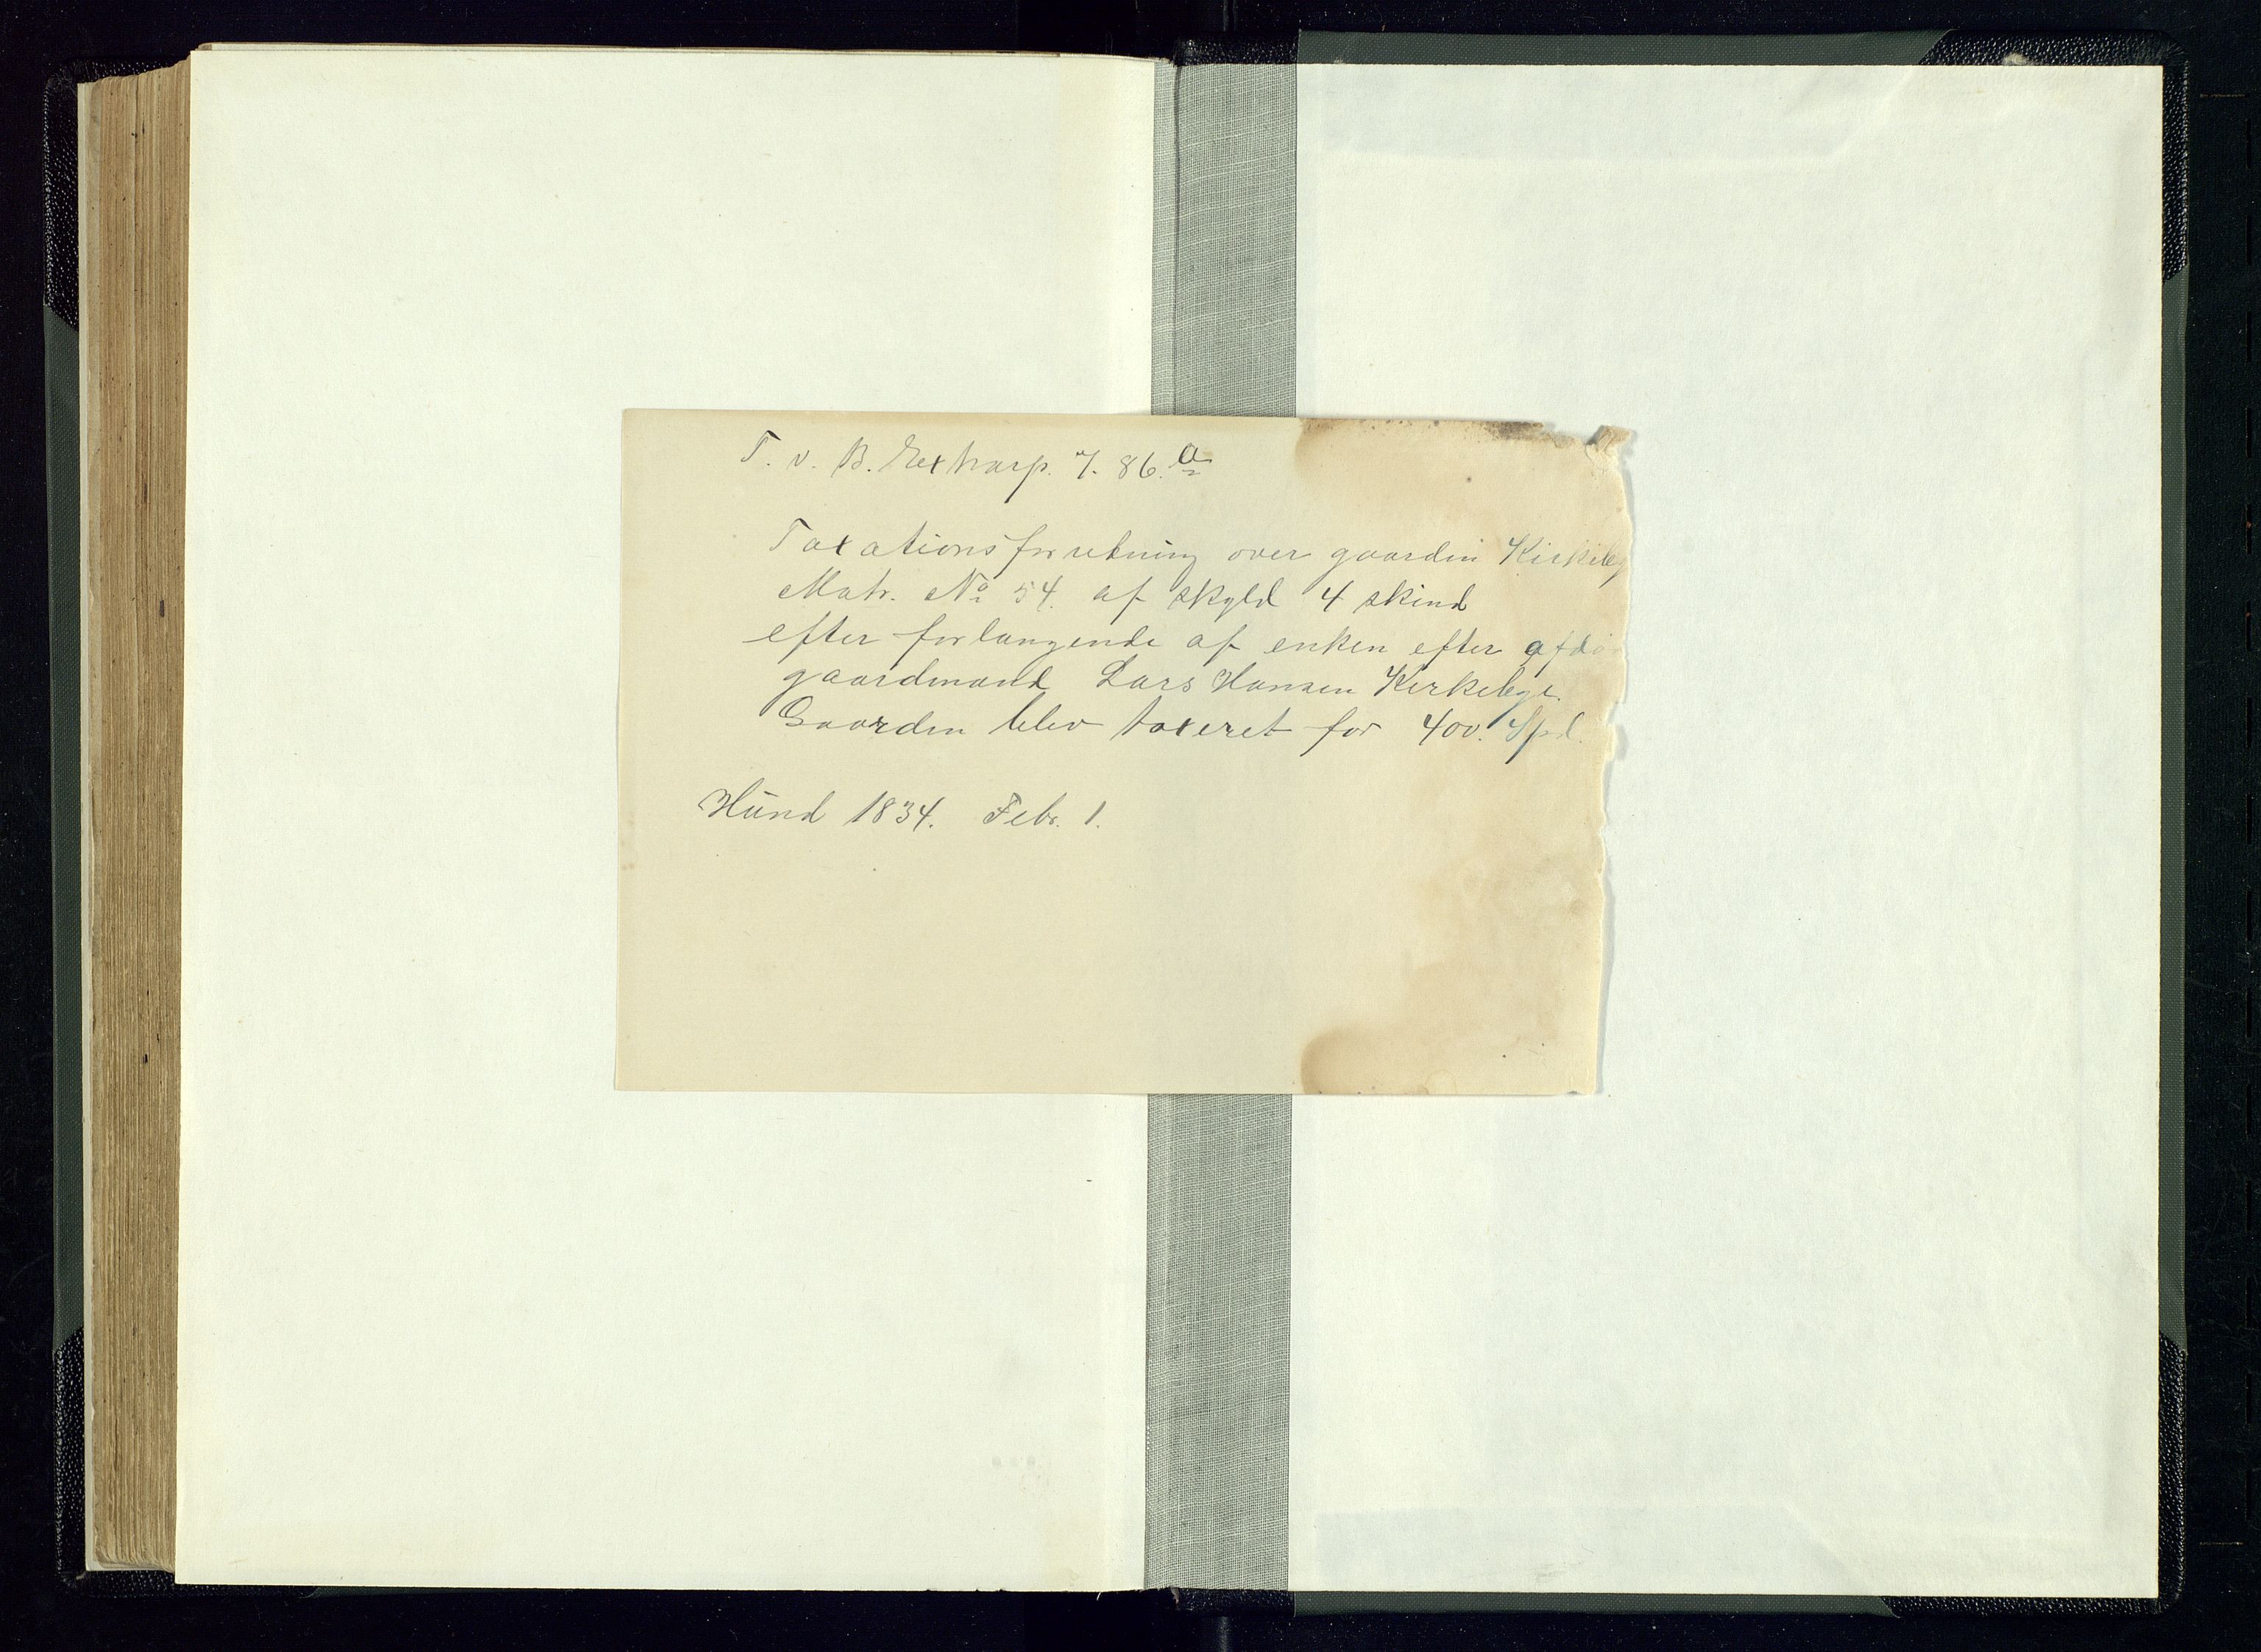 T. v. B. Extrasp. 7. 86.a
Taxationsforretning over gaarden Kirkeby
Matr. No 54. af skyld 4 skind
efter forlangende af enken efter afdø
gaardmand Lars Hansen Kirkebye.
Gaarden blev taxeret for 400. Spd.
Hund 1834. Febr. 1.